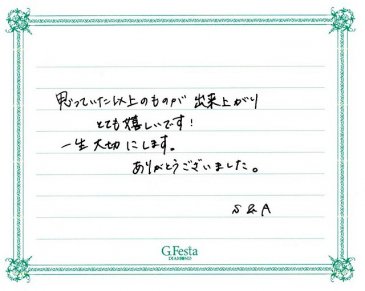 思っていた以上のものが 出来上がり
とても嬉しいです！
一生大切にします。
ありがとうございました。
S & A
G.Festa
DIAMOND